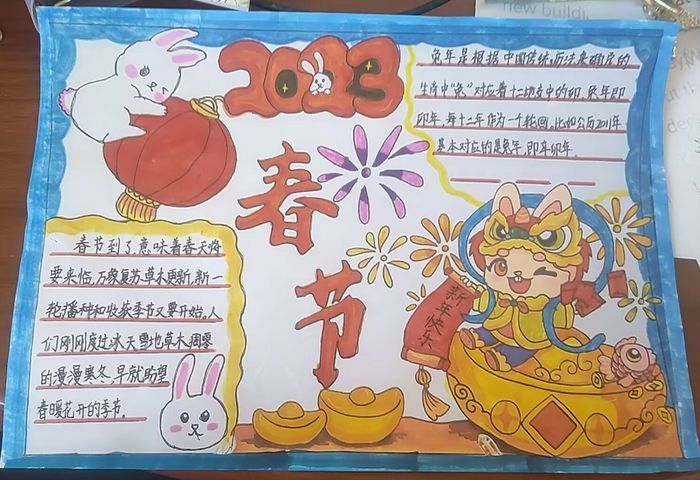 2023
兔年是根据中国传统历法来确定的
生肖中“兔”对应着十二地支中的卯，兔年即
卯年，每十二年作为一个轮回，比如公历2011年
基本对应的是兔年，即辛卯年。
春
节
新年快乐
春节到了，意味着春天将
要来临，万象复苏草木更新，新一
轮播种和收获季节又要开始，人
们刚刚度过冰天雪地草木凋零
的漫漫寒冬，早就盼望
春暖花开的季节．
new buildin